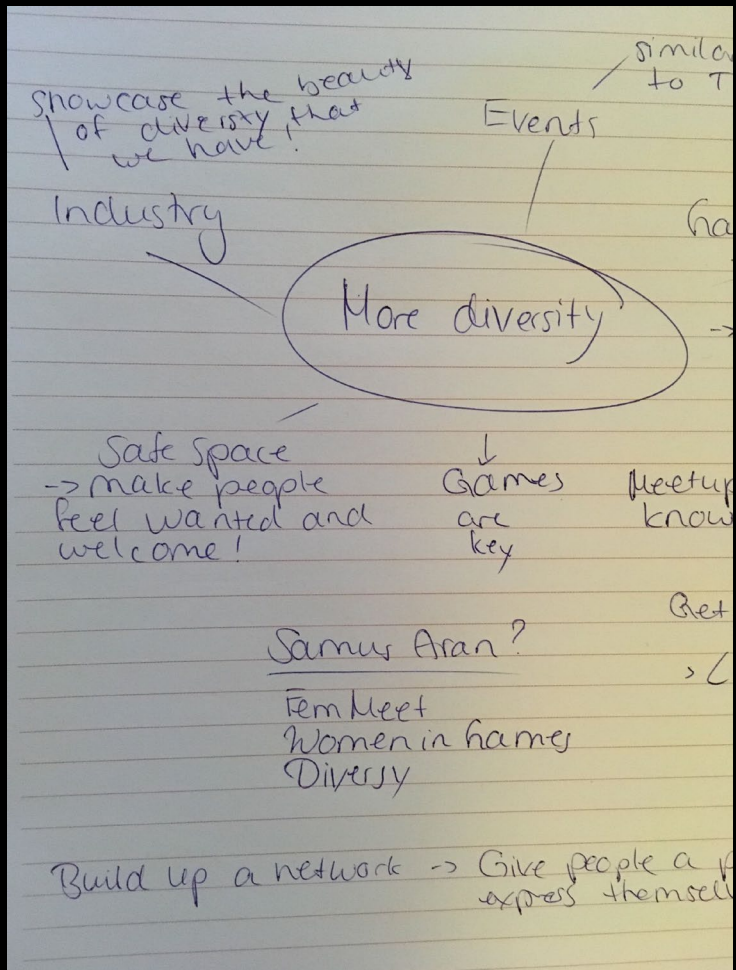 similar
to T
showcase the beauty
of diversity, that
we have!
Events
Industry
ha
More diversity
->
Safe space
-> make people
feel wanted and
welcome!
↓
Games
are
key
Meetup
know
Get
Samus Aran?
Fem Meet
Women in Games
Diversy
Build up a network -> Give people a p
express themsel